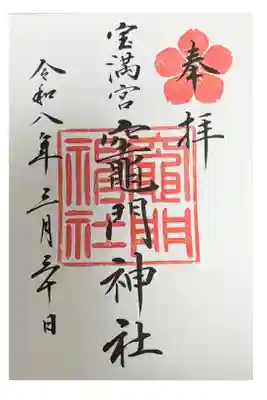 奉拝
宝満宮
竈門神社
令和八年三月三十日
竈門神社